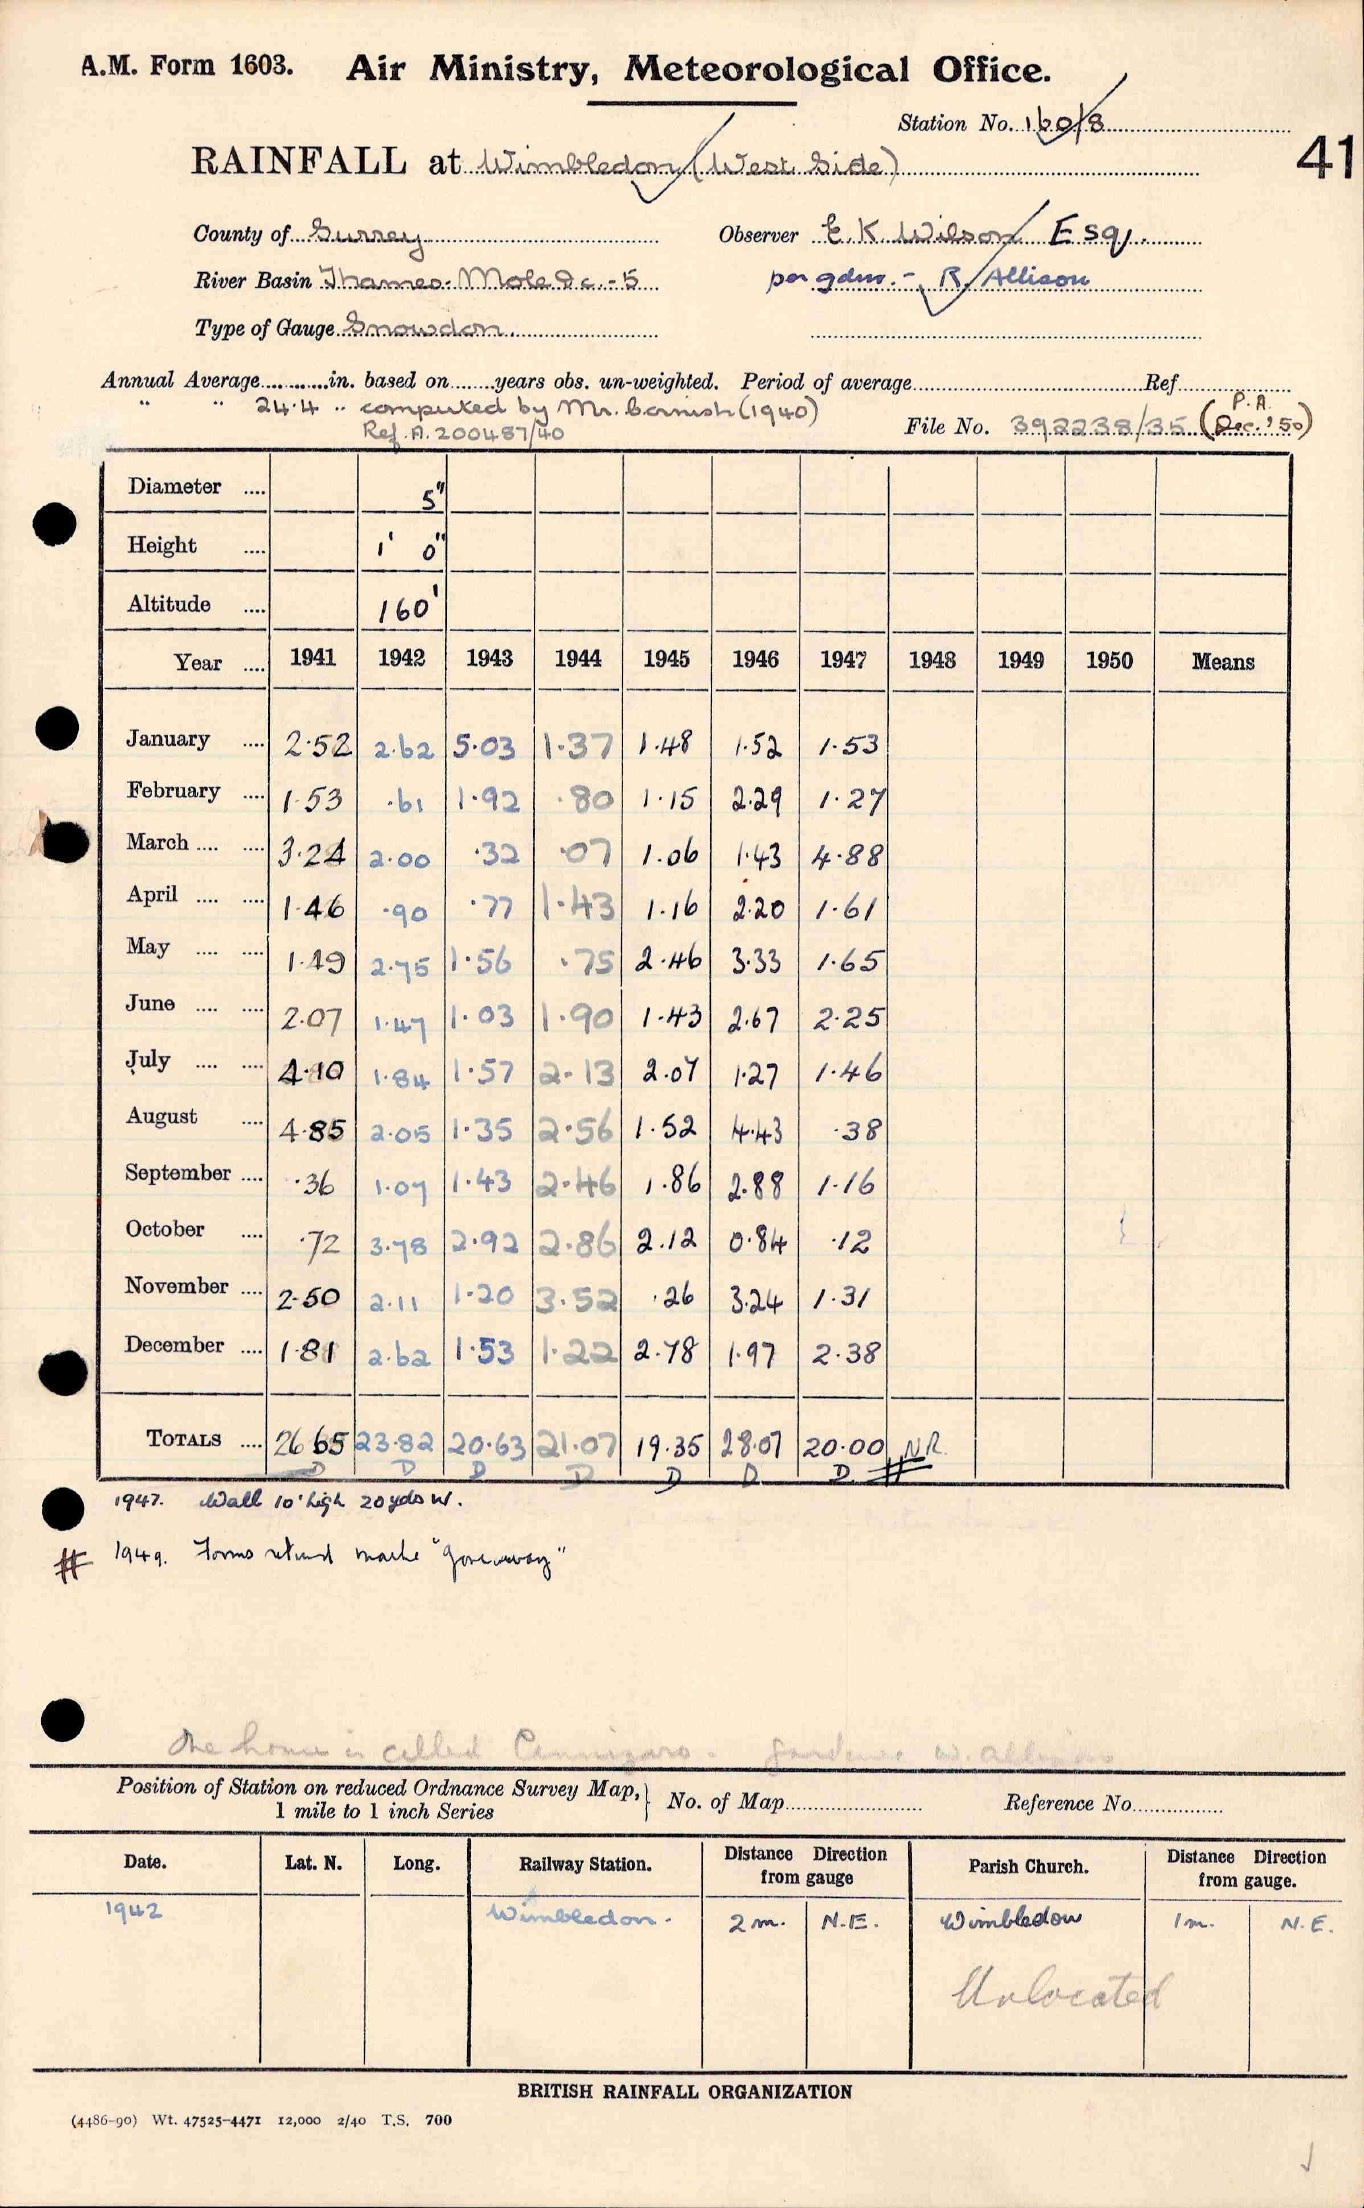 A.M. Form 1603. Air Ministry, Meteorological Office.
Station No. 160/8
41
RAINFALL at Wimbledon (West Side)
County of Surrey Observer E. K. Wilson Esq.
River Basin Thames - Mole &c. - 5 per gdnr. - R. Allison
Type of Gauge Snowdon.
Annual Average............in. based on........years obs. un-weighted. Period of average........................Ref.............
" " 24.4 " computed by Mr. Cornish (1940)
Ref. A. 200487/40
File No. 392238/35 (P.A. Dec. '50)
Diameter .... 5"
Height .... 1' 0"
Altitude .... 160'
Year .... 1941 1942 1943 1944 1945 1946 1947 1948 1949 1950 Means
January .... 2.52 2.62 5.03 1.37 1.48 1.52 1.53
February .... 1.53 .61 1.92 .80 1.15 2.29 1.27
March .... .... 3.24 2.00 .32 .07 1.06 1.43 4.88
April .... .... 1.46 .90 .77 1.43 1.16 2.20 1.61
May .... .... 1.49 2.75 1.56 .75 2.46 3.33 1.65
June .... .... 2.07 1.47 1.03 1.90 1.43 2.67 2.25
July .... .... 4.10 1.84 1.57 2.13 2.07 1.27 1.46
August .... 4.85 2.05 1.35 2.56 1.52 4.43 .38
September .... .36 1.07 1.43 2.46 1.86 2.88 1.16
October .... .72 3.78 2.92 2.86 2.12 0.84 .12
November .... 2.50 2.11 1.20 3.52 .26 3.24 1.31
December .... 1.81 2.62 1.53 1.22 2.78 1.97 2.38
TOTALS .... 26 65 23.82 20.63 21.07 19.35 28.07 20.00 N.R.
D D D D D D D #
1947. Wall 10' high 20 yds W.
# 1949. Forms returned marked "gone away"
The house is called Cannizaro - gardener W. Allison
Position of Station on reduced Ordnance Survey Map, } No. of Map........................ Reference No................
1 mile to 1 inch Series
Date. Lat. N. Long. Railway Station. Distance Direction from gauge Parish Church. Distance Direction from gauge.
1942 Wimbledon. 2 m. N.E. Wimbledon 1 m. N.E.
Unlocated
BRITISH RAINFALL ORGANIZATION
(4486-90) Wt. 47525-4471 12,000 2/40 T.S. 700